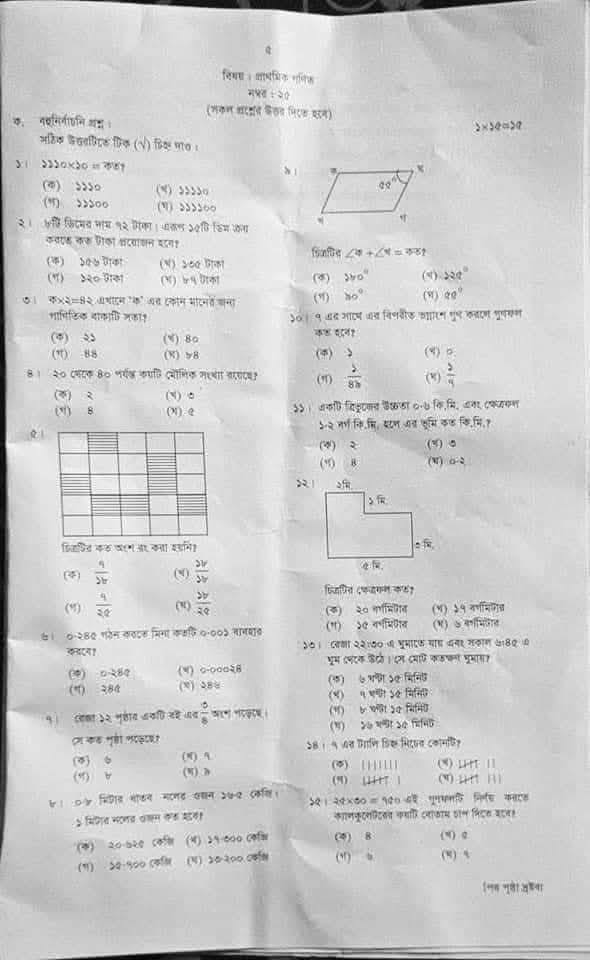 ৫
বিষয় : প্রাথমিক গণিত
নম্বর : ২৫
(সকল প্রশ্নের উত্তর দিতে হবে)
ক. বহুনির্বাচনি প্রশ্ন :
১×১৫=১৫
সঠিক উত্তরটিতে টিক (√) চিহ্ন দাও।
১। ১১১০×১০ = কত?
(ক) ১১১০ (খ) ১১১১০
(গ) ১১১০০ (ঘ) ১১১১০০
২। ৮টি ডিমের দাম ৭২ টাকা। এরূপ ১৫টি ডিম ক্রয়
করতে কত টাকা প্রয়োজন হবে?
(ক) ১৫৬ টাকা (খ) ১৩৫ টাকা
(গ) ১২০ টাকা (ঘ) ৮৭ টাকা
৩। ক×২=৪২ এখানে 'ক' এর কোন মানের জন্য
গাণিতিক বাক্যটি সত্য?
(ক) ২১ (খ) ৪০
(গ) ৪৪ (ঘ) ৮৪
৪। ২০ থেকে ৪০ পর্যন্ত কয়টি মৌলিক সংখ্যা রয়েছে?
(ক) ২ (খ) ৩
(গ) ৪ (ঘ) ৫
৫।
চিত্রটির কত অংশ রং করা হয়নি?
(ক) ৭/১৮ (খ) ১৮/১৮
(গ) ৭/২৫ (ঘ) ১৮/২৫
৬। ০·২৪৫ গঠন করতে মিনা কতটি ০·০০১ ব্যবহার
করবে?
(ক) ০·২৪৫ (খ) ০·০০০২৪
(গ) ২৪৫ (ঘ) ২৪৬
৭। রেজা ১২ পৃষ্ঠার একটি বই এর ৩/৪ অংশ পড়েছে।
সে কত পৃষ্ঠা পড়েছে?
(ক) ৬ (খ) ৭
(গ) ৮ (ঘ) ৯
৮। ০·৮ মিটার ধাতব নলের ওজন ১৬·৫ কেজি।
১ মিটার নলের ওজন কত হবে?
(ক) ২০·৬২৫ কেজি (খ) ১৭·৩০০ কেজি
(গ) ১৫·৭০০ কেজি (ঘ) ১৩·২০০ কেজি
৯।
ক ঘ
৫৫°
খ গ
চিত্রটির ∠ক + ∠খ = কত?
(ক) ১৮০° (খ) ১২৫°
(গ) ৯০° (ঘ) ৫৫°
১০। ৭ এর সাথে এর বিপরীত ভগ্নাংশ গুণ করলে গুণফল
কত হবে?
(ক) ১ (খ) ০
(গ) ১/৪৯ (ঘ) ১/৭
১১। একটি ত্রিভুজের উচ্চতা ০·৬ কি.মি. এবং ক্ষেত্রফল
১·২ বর্গ কি.মি. হলে এর ভূমি কত কি.মি.?
(ক) ২ (খ) ৩
(গ) ৪ (ঘ) ০·২
১২। ২মি.
১ মি.
৩ মি.
৫ মি.
চিত্রটির ক্ষেত্রফল কত?
(ক) ২০ বর্গমিটার (খ) ১৭ বর্গমিটার
(গ) ১৫ বর্গমিটার (ঘ) ৬ বর্গমিটার
১৩। রেজা ২২:৩০ এ ঘুমাতে যায় এবং সকাল ৬:৪৫ এ
ঘুম থেকে উঠে। সে মোট কতক্ষণ ঘুমায়?
(ক) ৬ ঘণ্টা ১৫ মিনিট
(খ) ৭ ঘণ্টা ১৫ মিনিট
(গ) ৮ ঘণ্টা ১৫ মিনিট
(ঘ) ১৬ ঘণ্টা ১৫ মিনিট
১৪। ৭ এর ট্যালি চিহ্ন নিচের কোনটি?
(ক) (খ)
(গ) (ঘ)
১৫। ২৫×৩০ = ৭৫০ এই গুণফলটি নির্ণয় করতে
ক্যালকুলেটরের কয়টি বোতাম চাপ দিতে হবে?
(ক) ৪ (খ) ৫
(গ) ৬ (ঘ) ৭
পৃষ্ঠা দ্রষ্টব্য